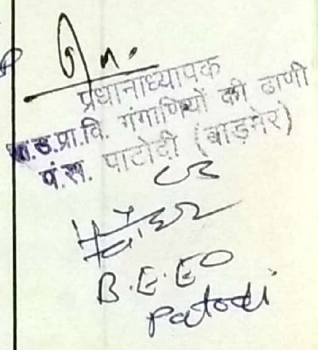 प्रधानाध्यापक
रा.उ.प्रा.वि. गंगाणियों की ढाणी
पं.स. पाटोदी (बाड़मेर)
B.E.EO
Patodi